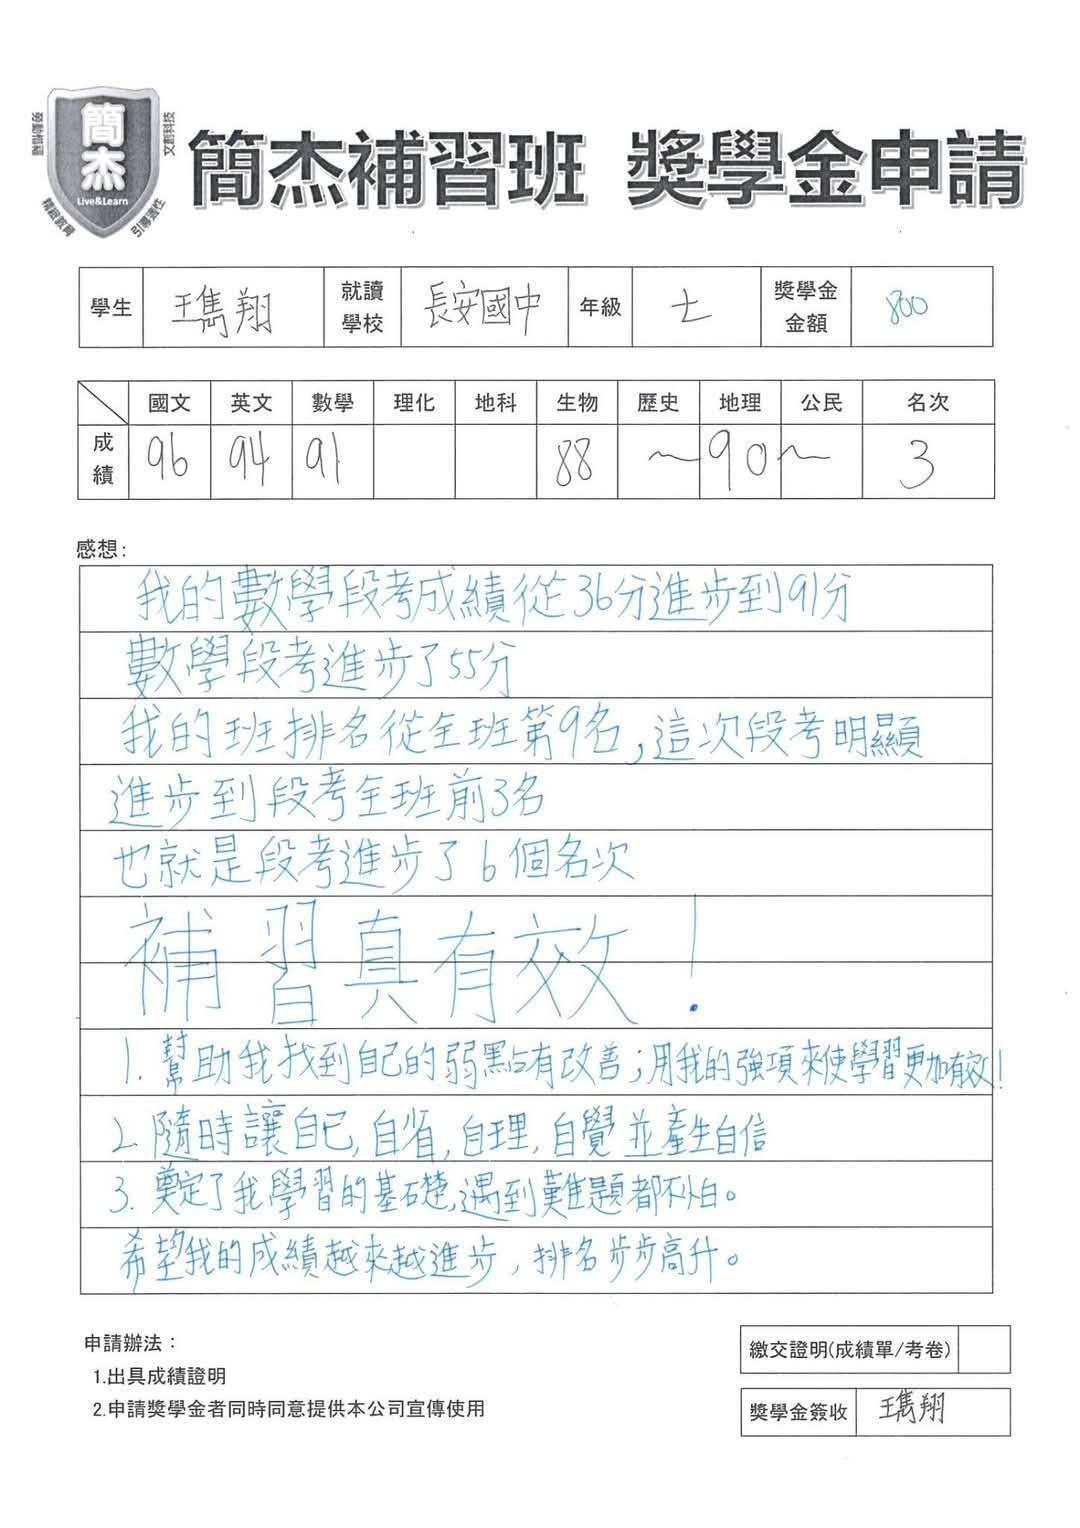 簡杰
Live&Learn
勞動相隨
文創科技
精緻教育
引導適性
簡杰補習班 獎學金申請
學生 王雋翔 就讀學校 長安國中 年級 七 獎學金金額 800
國文 英文 數學 理化 地科 生物 歷史 地理 公民 名次
成績 96 94 91 88 ~90~ 3
感想:
我的數學段考成績從36分進步到91分
數學段考進步了55分
我的班排名從全班第9名,這次段考明顯
進步到段考全班前3名
也就是段考進步了6個名次
補習真有效!
1. 幫助我找到自己的弱點有改善;用我的強項來使學習更加有效!
2. 隨時讓自己,自省,自理,自覺並產生自信
3. 奠定了我學習的基礎,遇到難題都不怕。
希望我的成績越來越進步,排名步步高升。
申請辦法:
1.出具成績證明
2.申請獎學金者同時同意提供本公司宣傳使用
繳交證明(成績單/考卷)
獎學金簽收 王雋翔